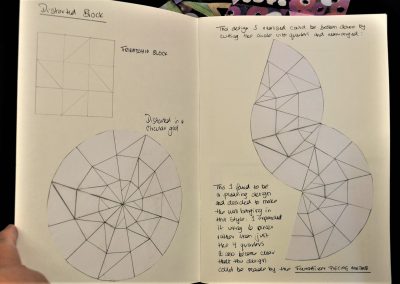 Distorted Block
FRIENDSHIP BLOCK
Distorted in a
circular grid
This design I realised could be broken down by
cutting the circle into quarters and rearranged.
This I found to be
a pleasing design
and decided to make
the wall hanging in
this style. I expanded
it using 6 pieces
rather than just
the 4 quarters
It also became clear
that the design
could be made by the FOUNDATION PIECING METHOD